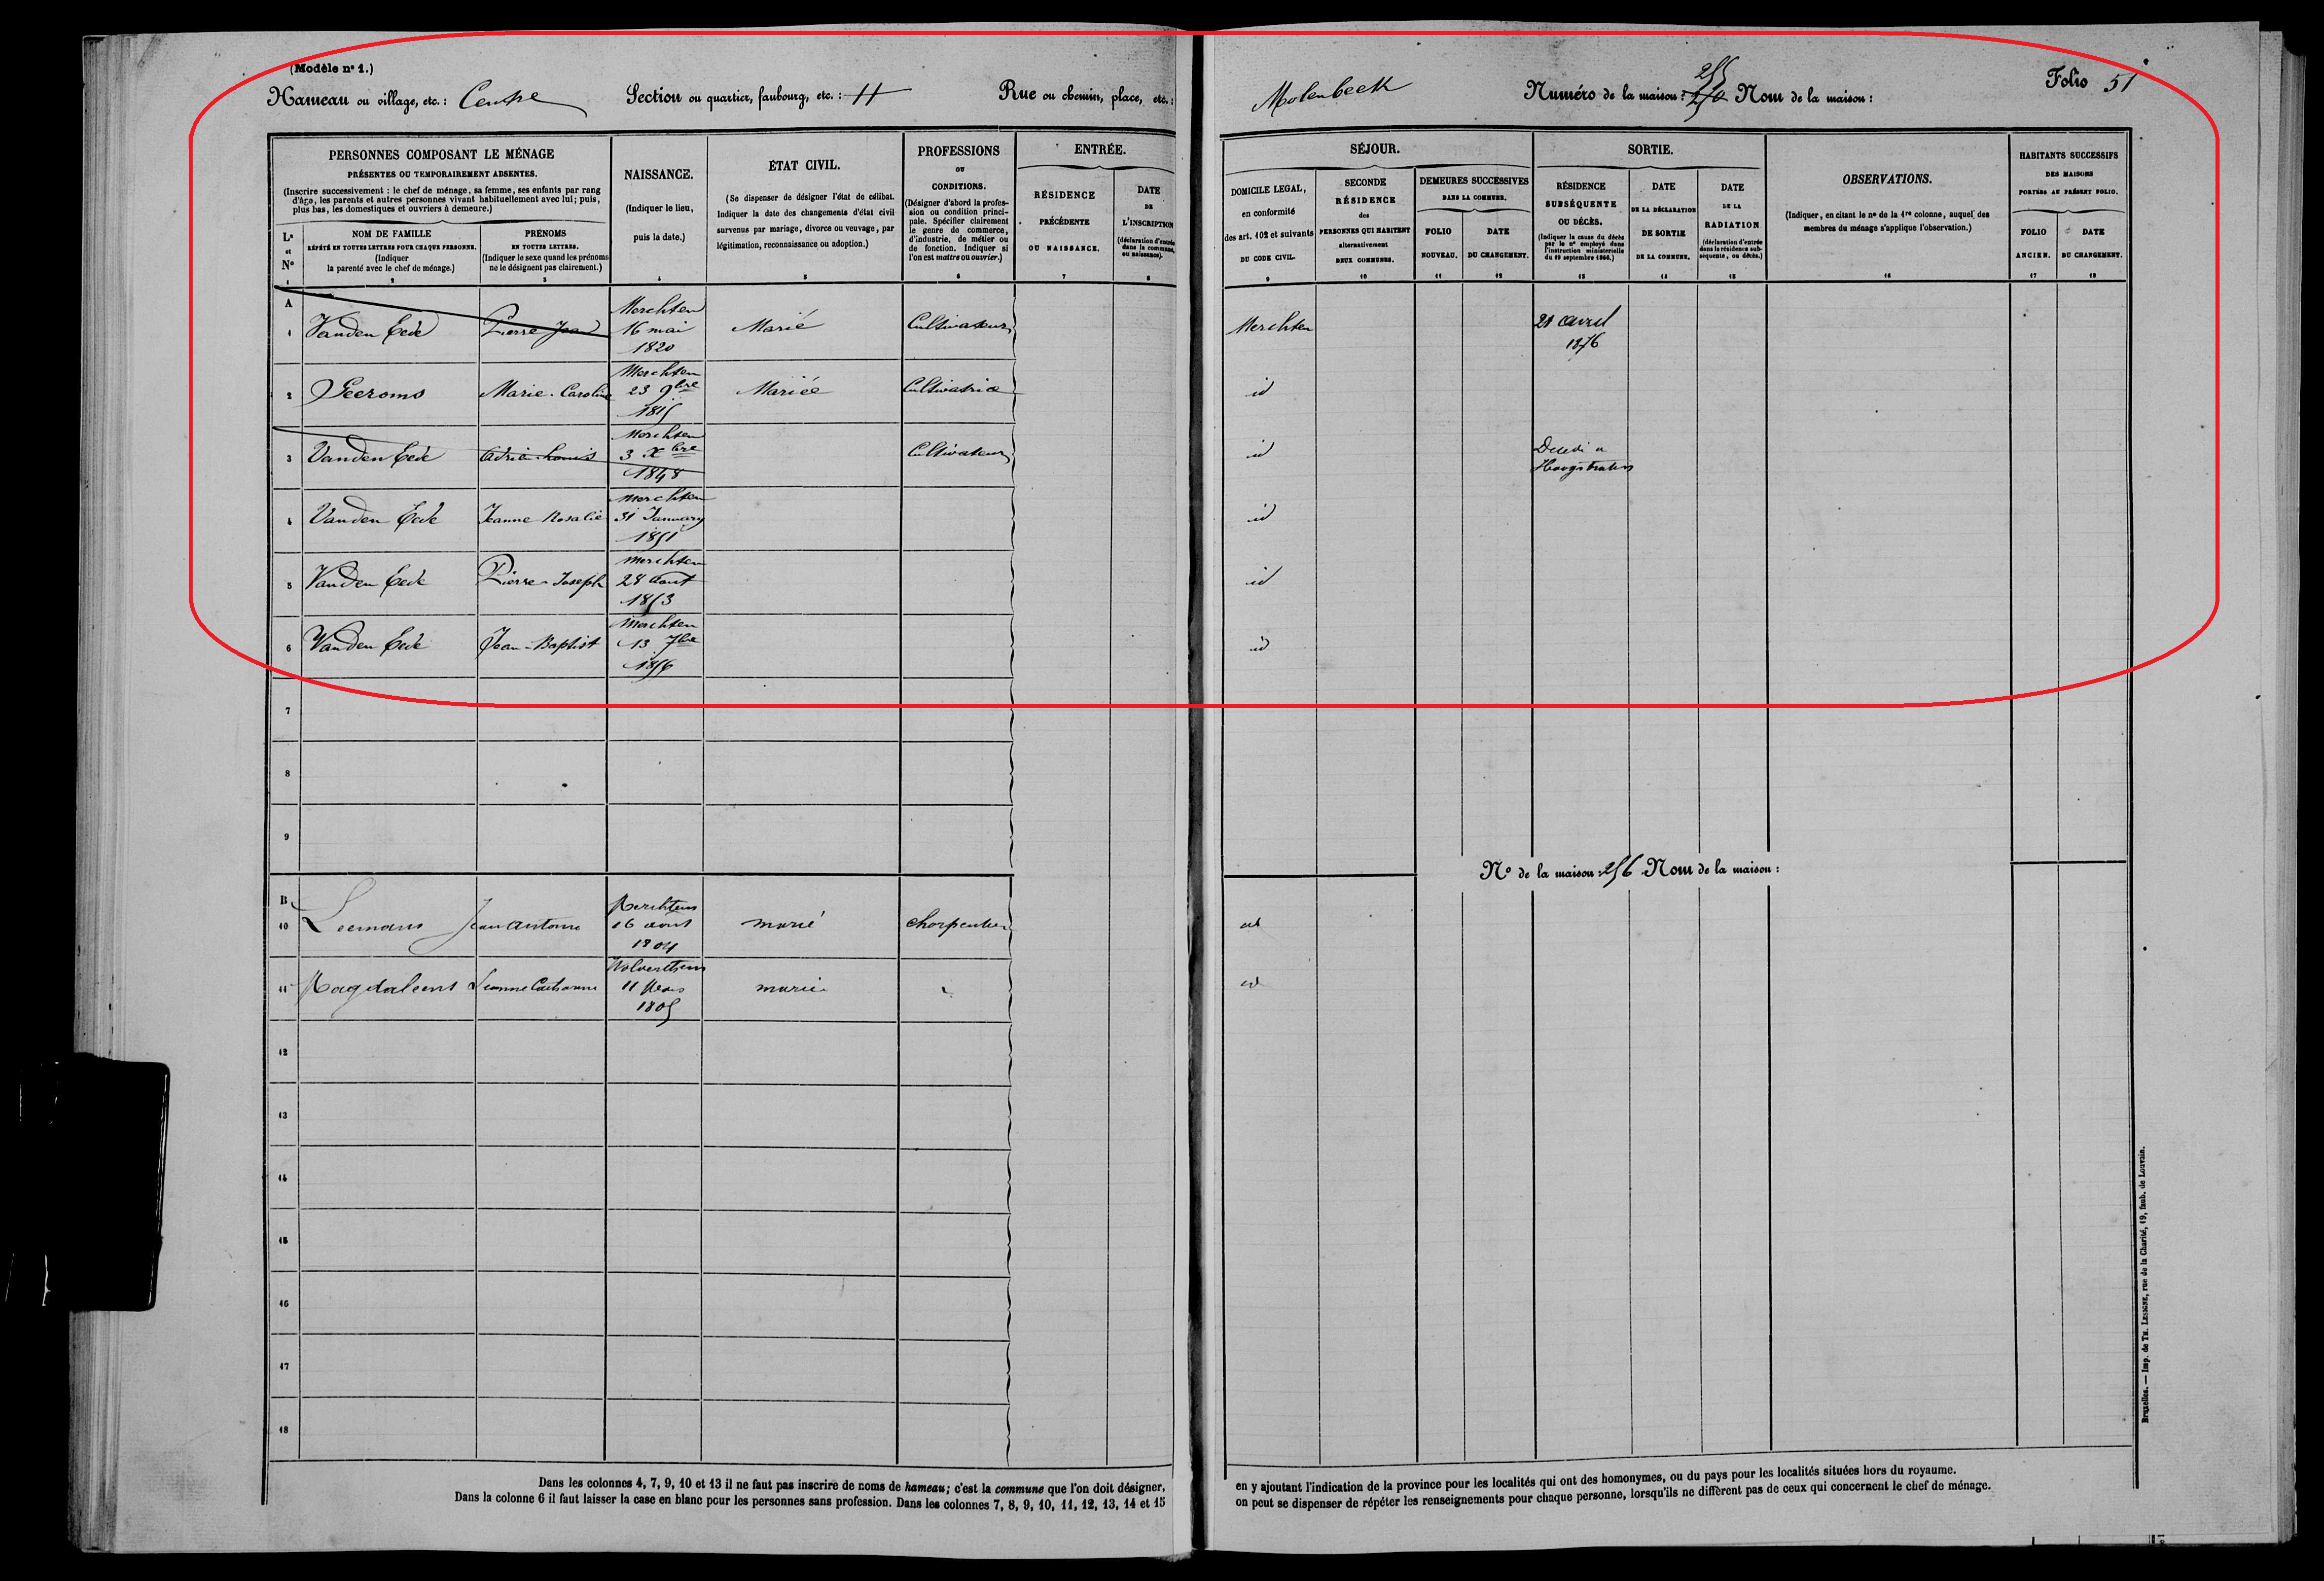 (Modèle nº 1.)
Hameau ou village, etc. : Centre Section ou quartier, faubourg, etc. : H Rue ou chemin, place, etc. : Molenbeek Numéro de la maison : 255 250 Nom de la maison : Folio 51
PERSONNES COMPOSANT LE MÉNAGE
PRÉSENTES OU TEMPORAIREMENT ABSENTES.
(Inscrire successivement : le chef de ménage, sa femme, ses enfants par rang
d'âge, les parents et autres personnes vivant habituellement avec lui ; puis,
plus bas, les domestiques et ouvriers à demeure.)
Lᵉ
et
Nº
1
NOM DE FAMILLE
RÉPÉTÉ EN TOUTES LETTRES POUR CHAQUE PERSONNE.
(Indiquer
la parenté avec le chef de ménage.)
2
PRÉNOMS
EN TOUTES LETTRES.
(Indiquer le sexe quand les prénoms
ne le désignent pas clairement.)
3
NAISSANCE.
(Indiquer le lieu,
puis la date.)
4
ÉTAT CIVIL.
(Se dispenser de désigner l'état de célibat.
Indiquer la date des changements d'état civil
survenus par mariage, divorce ou veuvage, par
légitimation, reconnaissance ou adoption.)
5
PROFESSIONS
OU
CONDITIONS.
(Désigner d'abord la profes-
sion ou condition princi-
pale. Spécifier clairement
le genre de commerce,
d'industrie, de métier ou
de fonction. Indiquer si
l'on est maître ou ouvrier.)
6
ENTRÉE.
RÉSIDENCE
PRÉCÉDENTE
OU NAISSANCE.
7
DATE
DE
L'INSCRIPTION
(déclaration d'entrée
dans la commune,
ou naissance).
8
SÉJOUR.
DOMICILE LEGAL,
en conformité
des art. 102 et suivants
DU CODE CIVIL.
9
SECONDE
RÉSIDENCE
des
PERSONNES QUI HABITENT
alternativement
DEUX COMMUNES.
10
DEMEURES SUCCESSIVES
DANS LA COMMUNE.
FOLIO
NOUVEAU.
11
DATE
DU CHANGEMENT.
12
SORTIE.
RÉSIDENCE
SUBSÉQUENTE
OU DÉCÈS.
(Indiquer la cause du décès
par le nº employé dans
l'instruction ministérielle
du 19 septembre 1866.)
13
DATE
DE LA DÉCLARATION
DE SORTIE
DE LA COMMUNE.
14
DATE
DE LA
RADIATION
(déclaration d'entrée
dans la résidence sub-
séquente, ou décès.)
15
OBSERVATIONS.
(Indiquer, en citant le nº de la 1ʳᵉ colonne, auquel des
membres du ménage s'applique l'observation.)
16
HABITANTS SUCCESSIFS
DES MAISONS
PORTÉES AU PRÉSENT FOLIO.
FOLIO
ANCIEN.
17
DATE
DU CHANGEMENT.
18
A
1 Vanden Eede Pierre Jean Merchten 16 mai 1820 Marié Cultivateur Merchten 21 avril 1876
2 Peeroms Marie-Caroline Merchten 23 9bre 1815 Mariée Cultivatrice id
3 Vanden Eede Adrie-Louis Merchten 3 Xbre 1848 Cultivateur id Décédé a Hoogstraten
4 Vanden Eede Jeanne Rosalie Merchten 31 January 1851 id
5 Vanden Eede Pierre-Joseph Merchten 28 Aout 1853 id
6 Vanden Eede Jean-Baptist Merchten 13 7bre 1856 id
7
8
9
Nº de la maison : 256 Nom de la maison :
B
10 Leemans Jean Antoine Merchtem 16 aout 1804 marié charpentier id
11 Magdaleens Jeanne Catharine Wolverthem 11 Mars 1805 mariée id
12
13
14
15
16
17
18
Dans les colonnes 4, 7, 9, 10 et 13 il ne faut pas inscrire de noms de hameau ; c'est la commune que l'on doit désigner, en y ajoutant l'indication de la province pour les localités qui ont des homonymes, ou du pays pour les localités situées hors du royaume.
Dans la colonne 6 il faut laisser la case en blanc pour les personnes sans profession. Dans les colonnes 7, 8, 9, 10, 11, 12, 13, 14 et 15 on peut se dispenser de répéter les renseignements pour chaque personne, lorsqu'ils ne diffèrent pas de ceux qui concernent le chef de ménage.
Bruxelles. — Imp. de TH. LESIGNE, rue de la Charité, 19, faub. de Louvain.